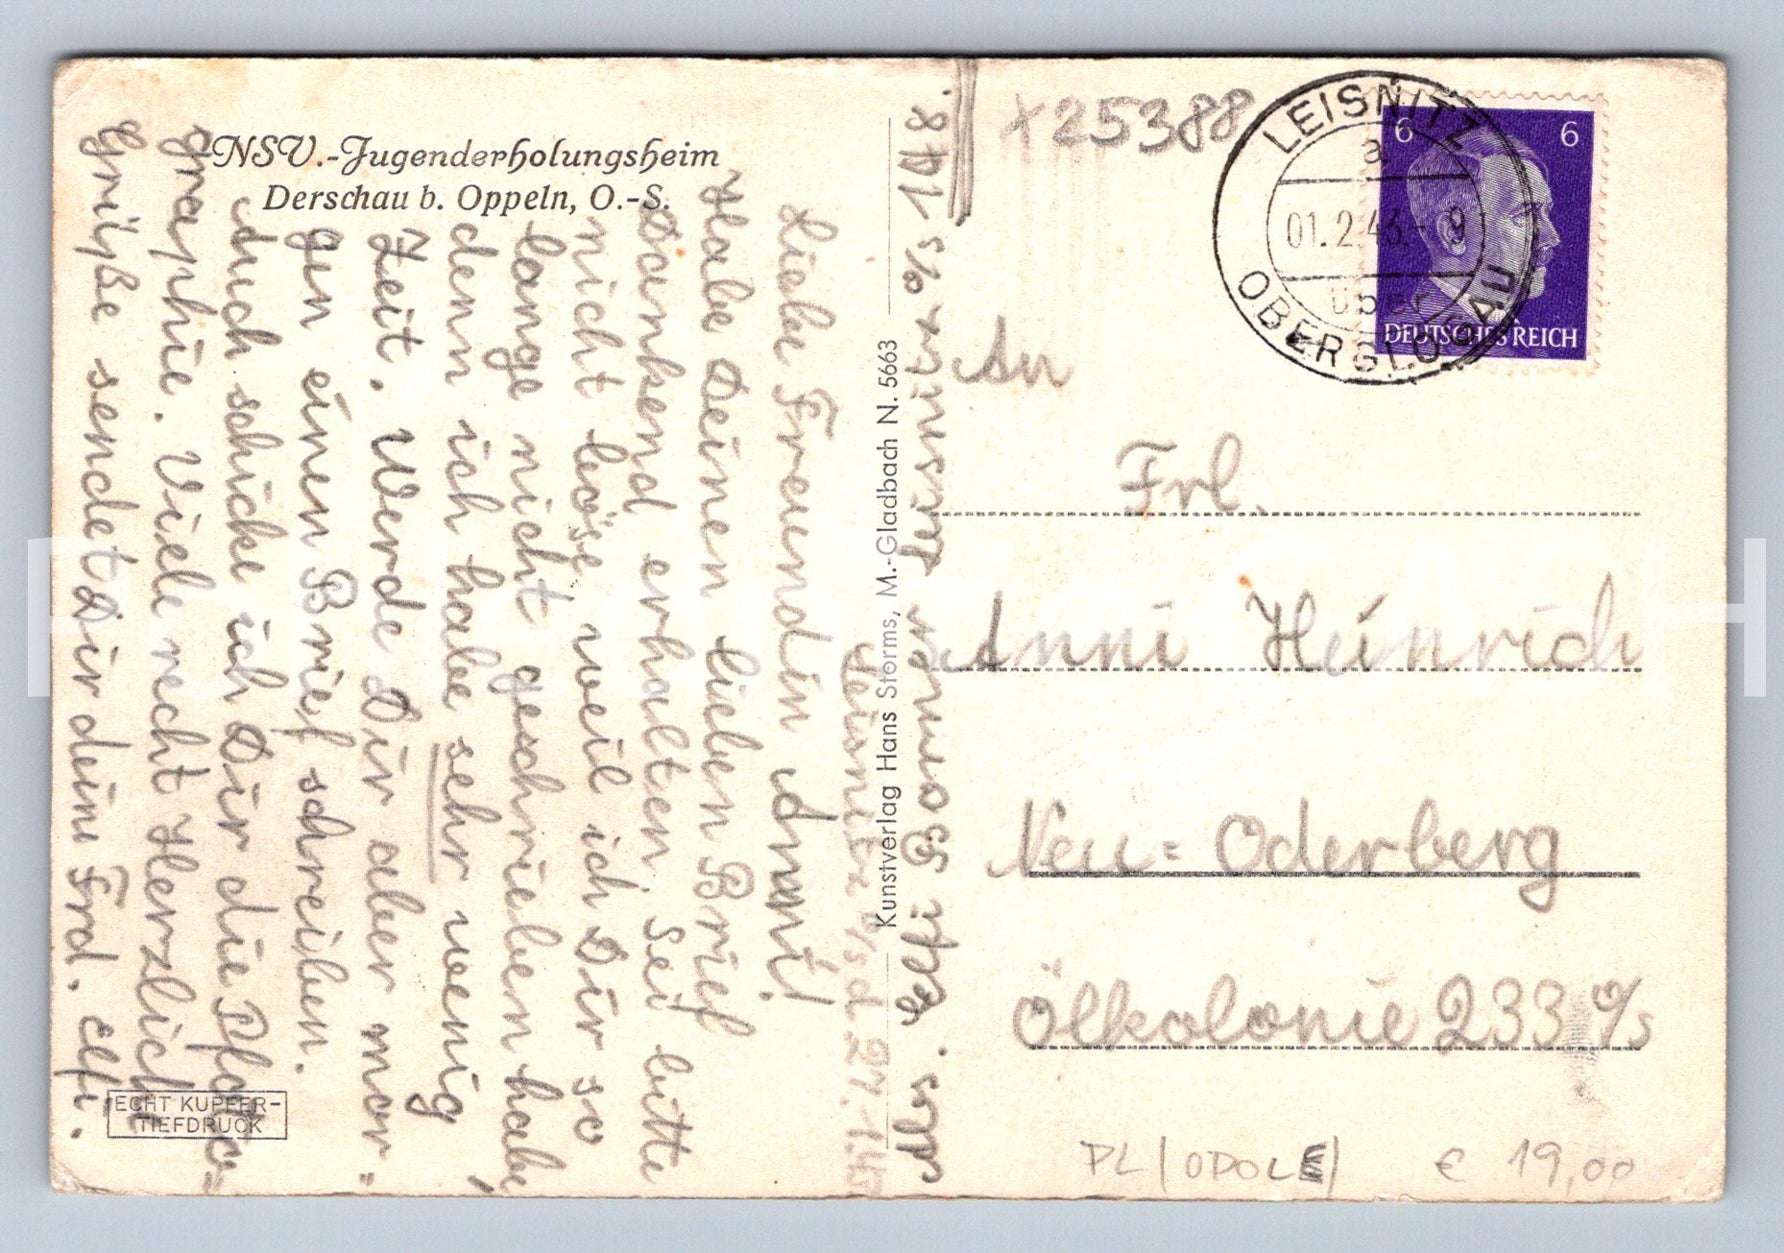 NSV.-Jugenderholungsheim
Derschau b. Oppeln, O.-S.
Leisnitz O/S d 27.1.43
Liebe Freundin Anni!
Habe Deinen lieben Brief
dankend erhalten. Sei bitte
nicht böse weil ich Dir so
lange nicht geschrieben habe,
denn ich habe sehr wenig
Zeit. Werde Dir aber mor=
gen einen Brief schreiben.
Auch schicke ich Dir die Photo=
graphie. Viele recht Herzlich
Grüße sendet Dir deine Frd. Elfi.
ECHT KUPFER-
TIEFDRUCK
Kunstverlag Hans Storms, M.-Gladbach N. 5663
Abs. Elfi Bonner Leisnitz O/S 148.
x25388
LEISNITZ
a
01.2.43.- 9
über
OBERGLOGAU
6 6
DEUTSCHES REICH
An
Frl.
Anni Heinrich
Neu= Oderberg
Ölkolonie 233 O/S
PL (OPOLE)
€ 19,00